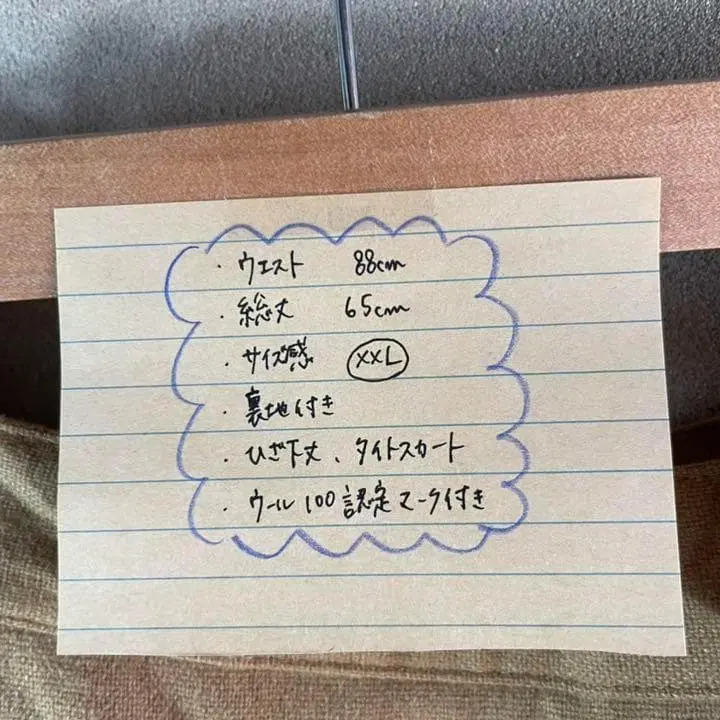 ・ウエスト 88cm
・総丈 65cm
・サイズ感 XXL
・裏地付き
・ひざ下丈、タイトスカート
・ウール100認定マーク付き